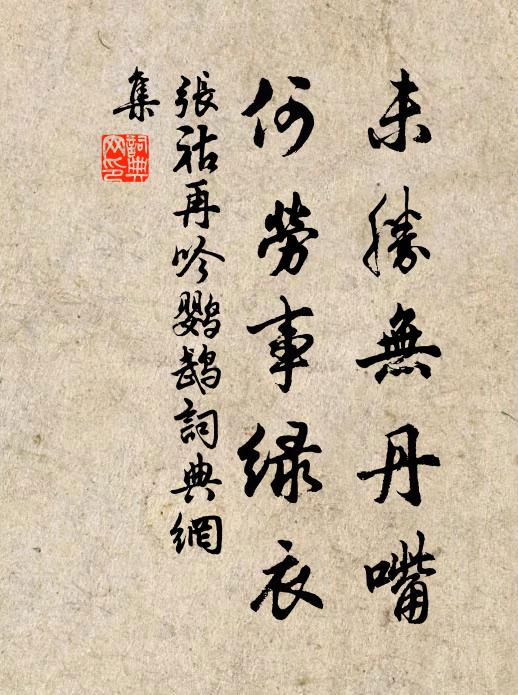 未勝無丹嘴
何勞事緑衣
張祜再吟鹦鵡詞典網
集
詞典
网印